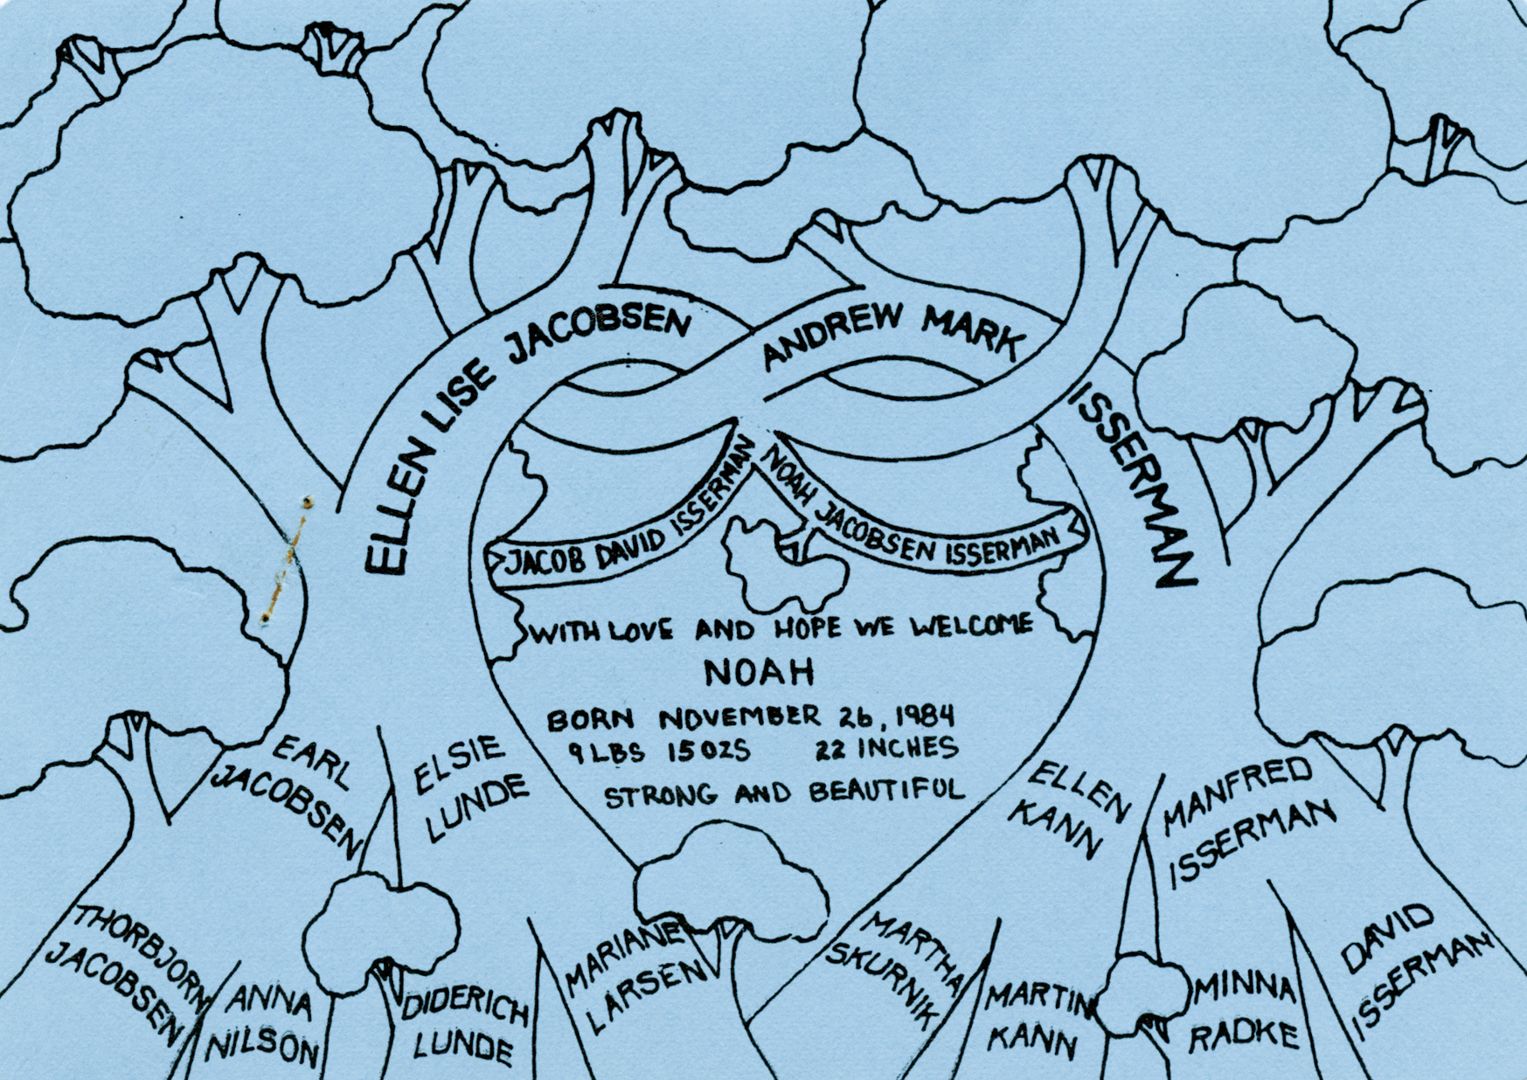 ELLEN LISE JACOBSEN
ANDREW MARK ISSERMAN
JACOB DAVID ISSERMAN
NOAH JACOBSEN ISSERMAN
WITH LOVE AND HOPE WE WELCOME
NOAH
BORN NOVEMBER 26, 1984
9 LBS 15 OZS 22 INCHES
STRONG AND BEAUTIFUL
EARL
JACOBSEN
ELSIE
LUNDE
ELLEN
KANN
MANFRED
ISSERMAN
THORBJORN
JACOBSEN
ANNA
NILSON
DIDERICH
LUNDE
MARIANE
LARSEN
MARTHA
SKURNIK
MARTIN
KANN
MINNA
RADKE
DAVID
ISSERMAN